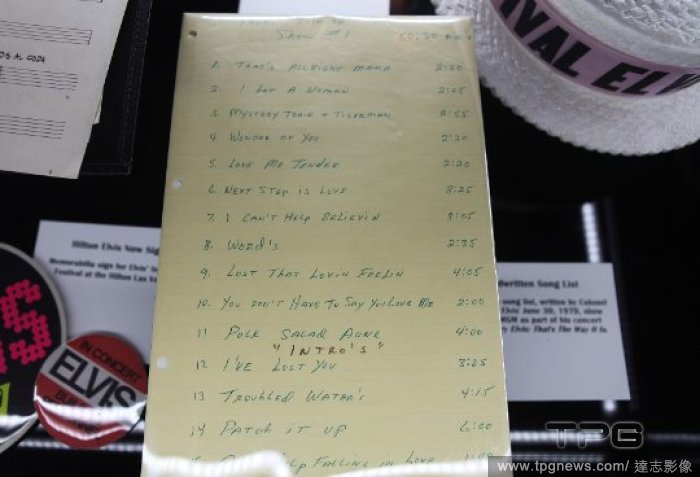 Show #1 60:30 min
1. That's Allright Mama 2:20
2. I Got A Woman 2:05
3. Mystery Train + Tigerman 2:55
4. Wonder of You 2:20
5. Love Me Tender 2:20
6. Next Step is Love 3:25
7. I Can't Help Believin 3:05
8. Word's 2:35
9. Lost That Lovin Feelin 4:05
10. You Don't Have To Say You Love Me 2:00
11 Polk Salad Anne 4:00
"INTRO'S"
12 I've Lost You 3:25
13 Troubled Water's 4:15
14 Patch it up 6:00
Help Falling in Love
IVAL EL
Hilton Elvis New
Memorabilia sign for Elvis'
Festival at the Hilton Las
IN CONCERT
ELVIS
S
written Song List
song list, written by Colonel
Elvis June 30, 1970, show
MGM as part of his concert
Elvis: That's The Way It Is.
TPG
www.tpgnews.com/ 達志影像